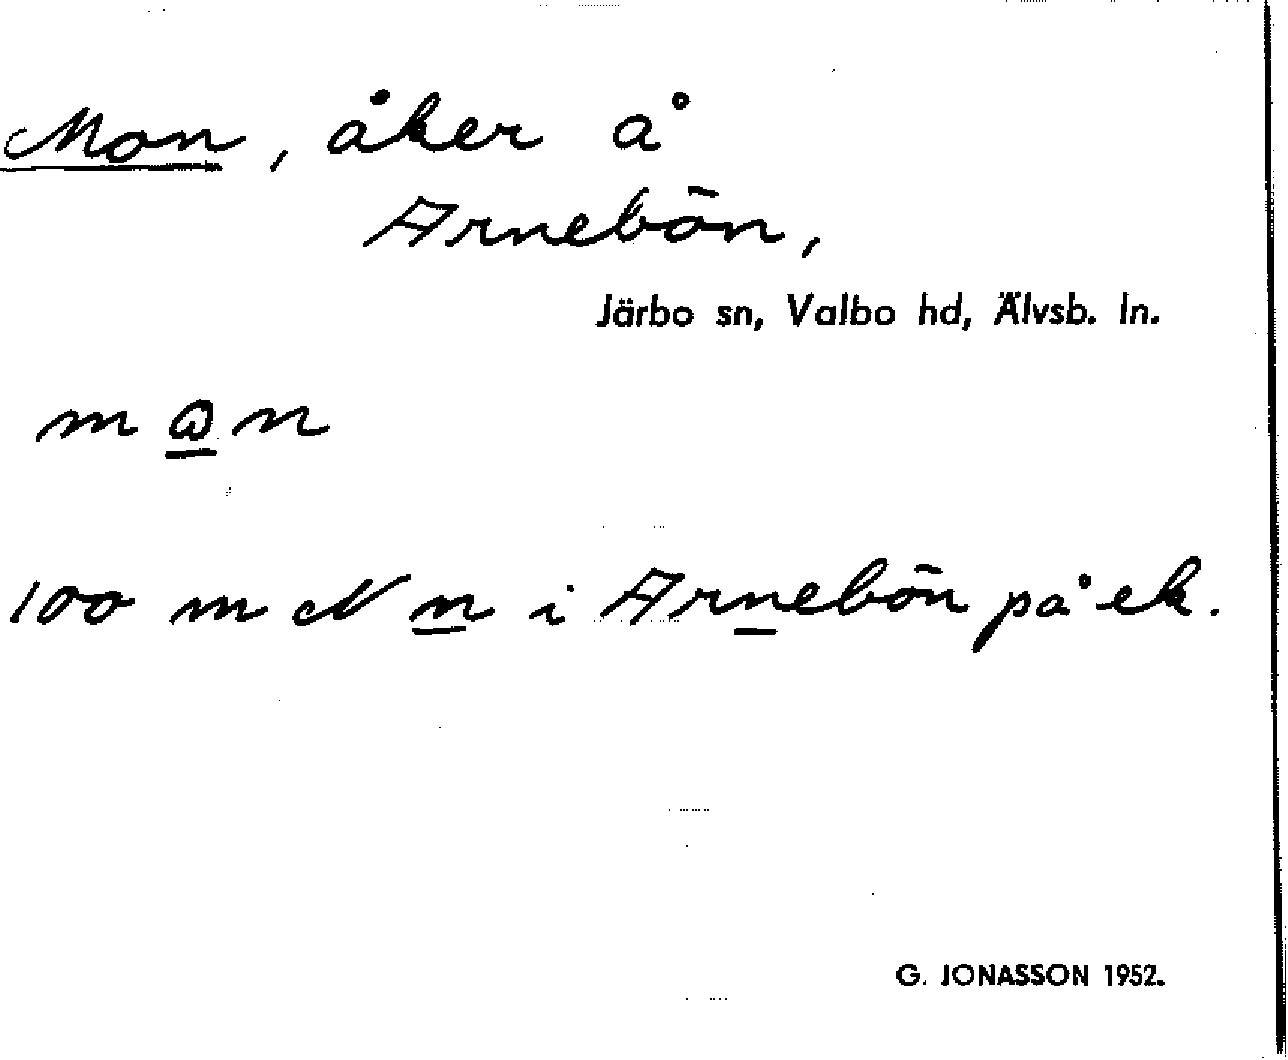 Mon, åker å
Arnebön,
Järbo sn, Valbo hd, Älvsb. ln.
100 m N n i Arnebön på ek.
G. JONASSON 1952.